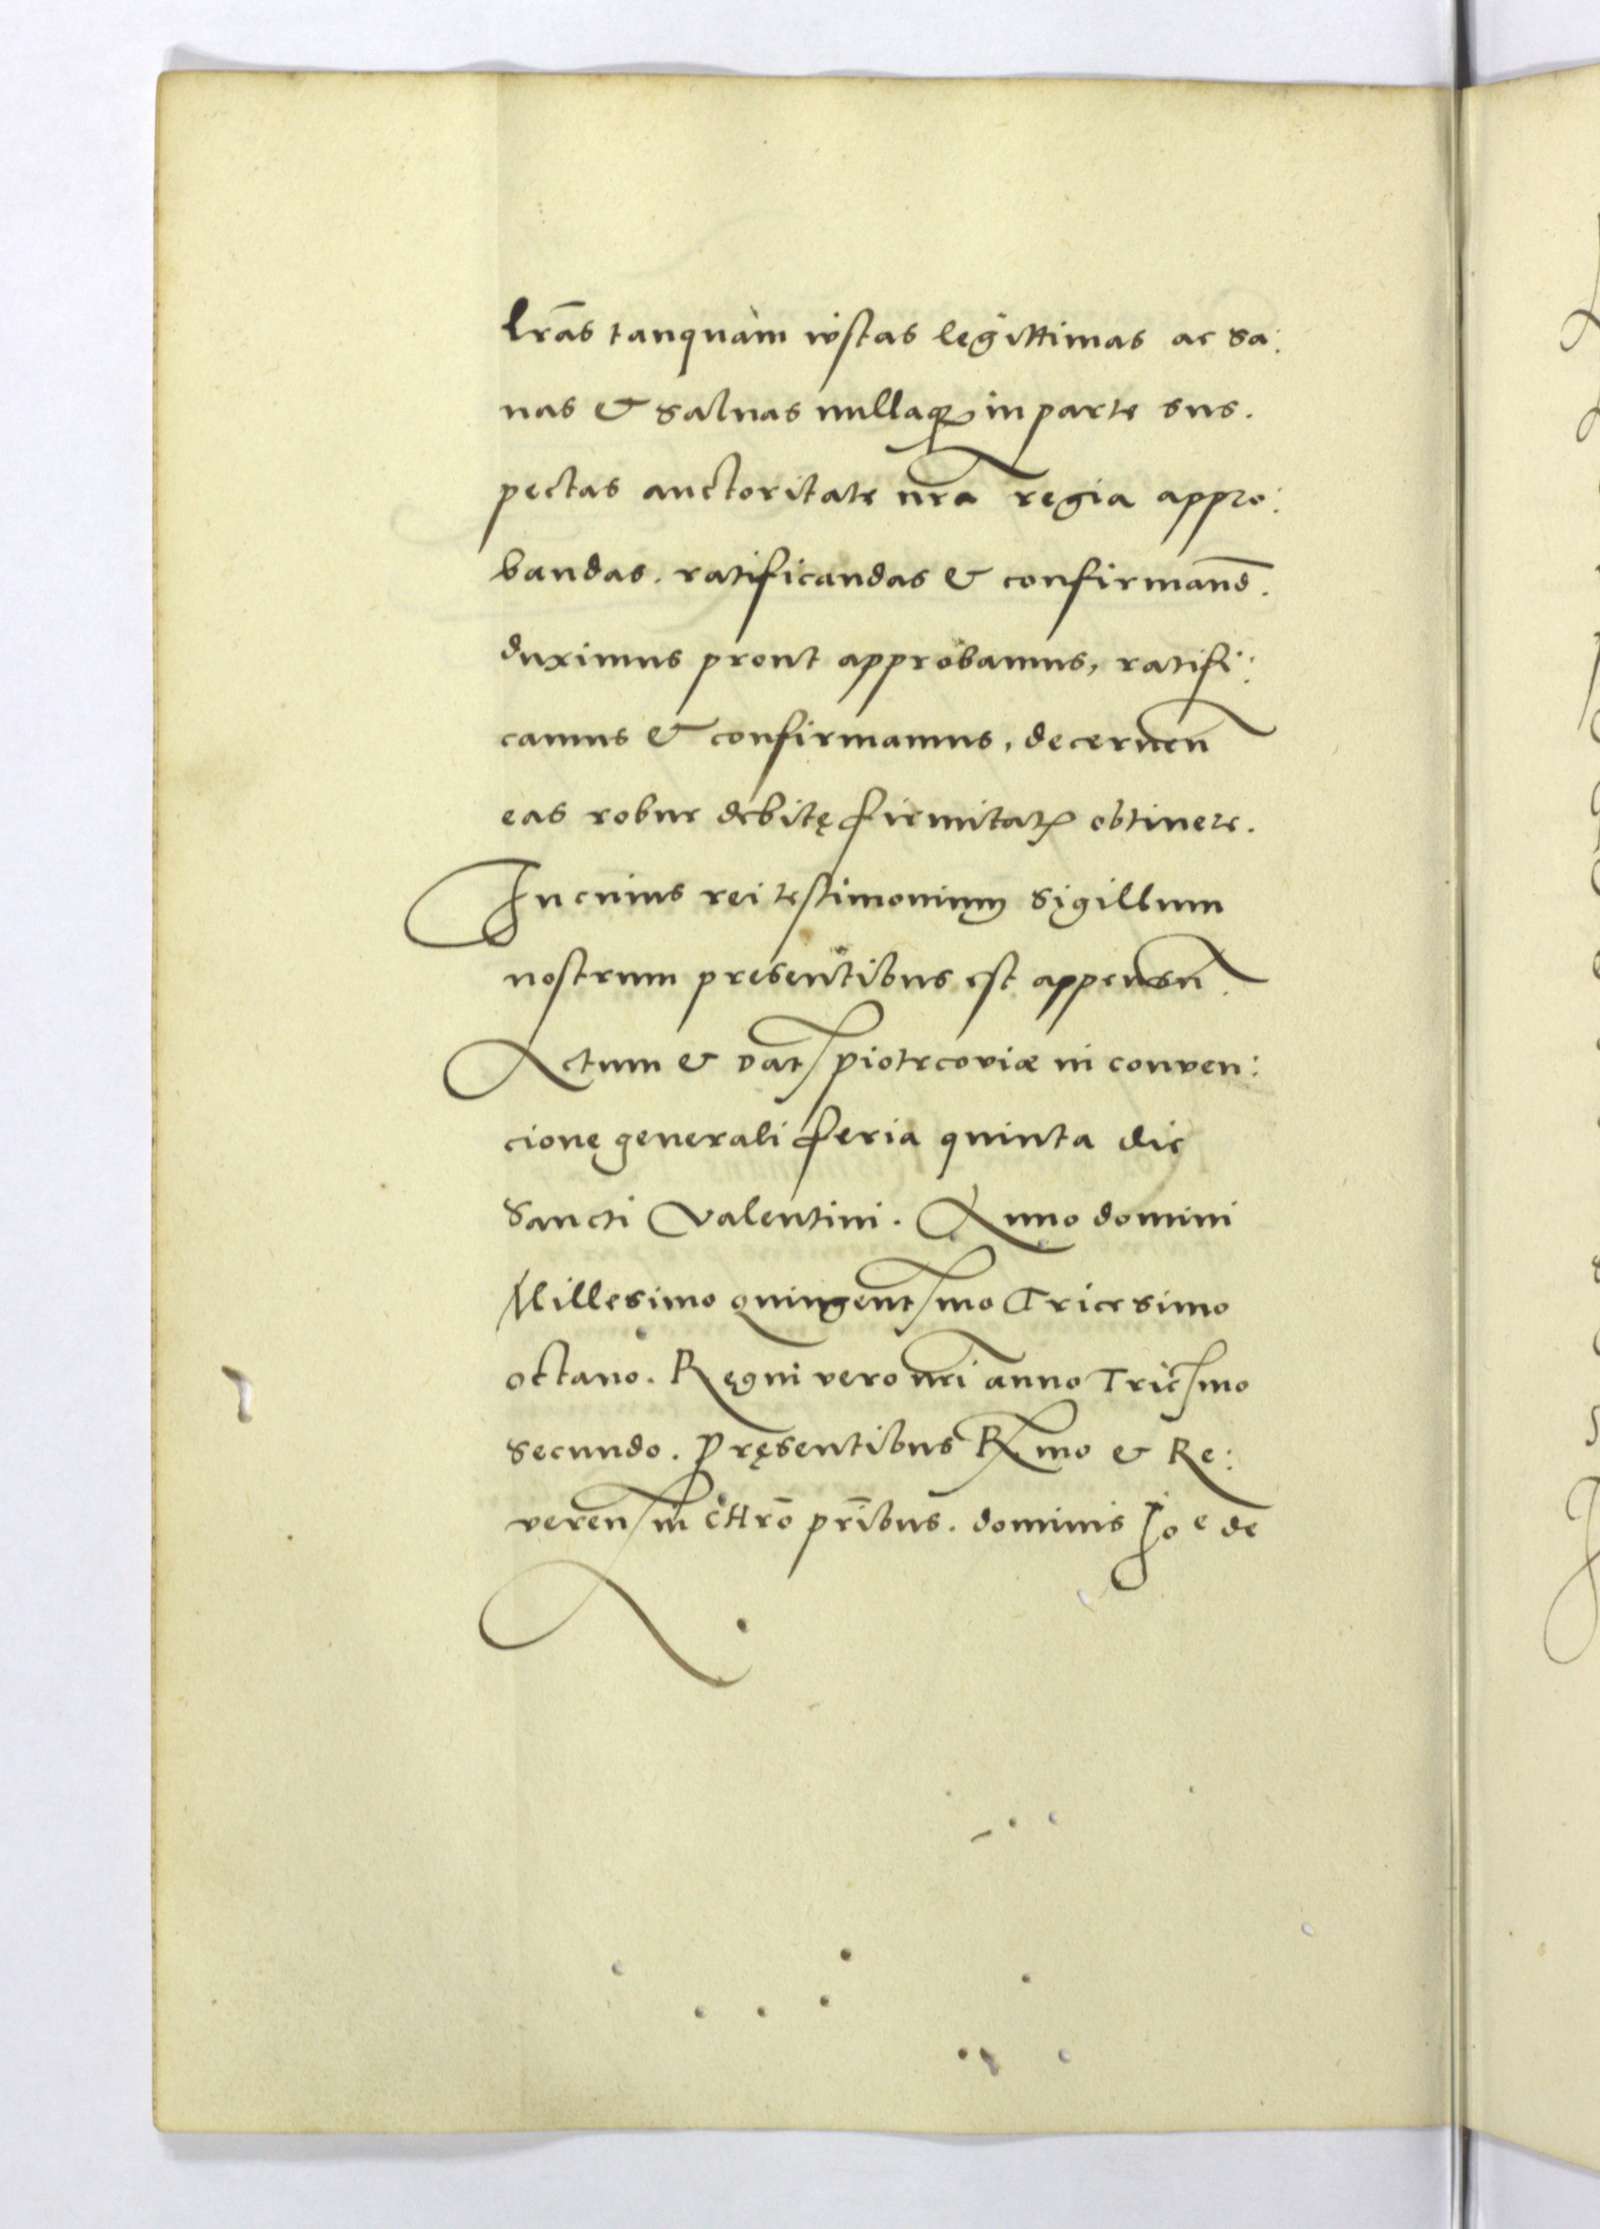 Lr̄as tanquam iustas legittimas ac sa:
nas & saluas nullaqȝ in parte sus.
pectas auctoritate nr̄a regia appro:
bandas. ratificandas & confirmand̄.
duximus prout approbamus, ratifi:
camus & confirmamus, decernen̄
eas robur debitę firmitatꝭ obtinere.
In cuius rei testimonium sigillum
nostrum presentibus est appensū.
Actum & Dat̄ Piotrcoviæ in conven:
cionę generali feria quinta die
Sancti Valentini. Anno domini
Millesimo quingent̄smo Tricesimo
octauo. Ręgni vero nr̄i anno Tric̄smo
secundo. Pręsentibus R̄mo & Re:
veren̄ in cHrō pr̄ibus. dominis Joe de